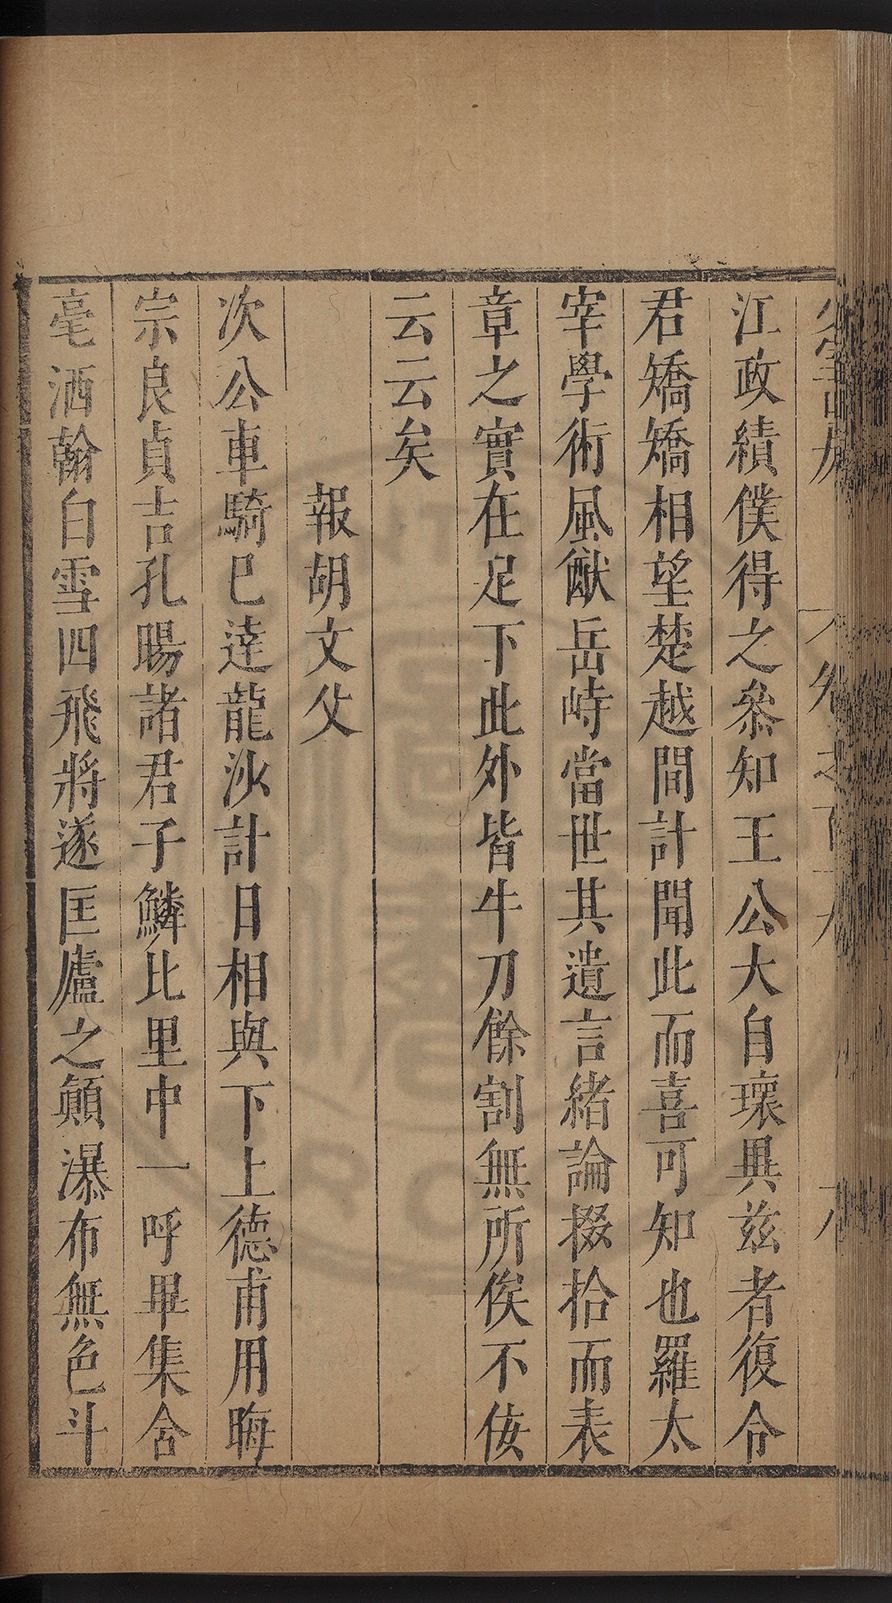 江政績僕得之叅知王公大自瓌異茲者復令
君矯矯相望楚越間計聞此而喜可知也羅太
宰學術風猷岳峙當世其遺言緒論掇拾而表
章之實在足下此外皆牛刀餘割無所俟不佞
云云矣
報胡文父
次公車騎已達龍沙計日相與下上德甫用晦
宗良貞吉孔暘諸君子鱗比里中一呼畢集含
毫洒翰白雪四飛將遂匡廬之顛瀑布無色斗